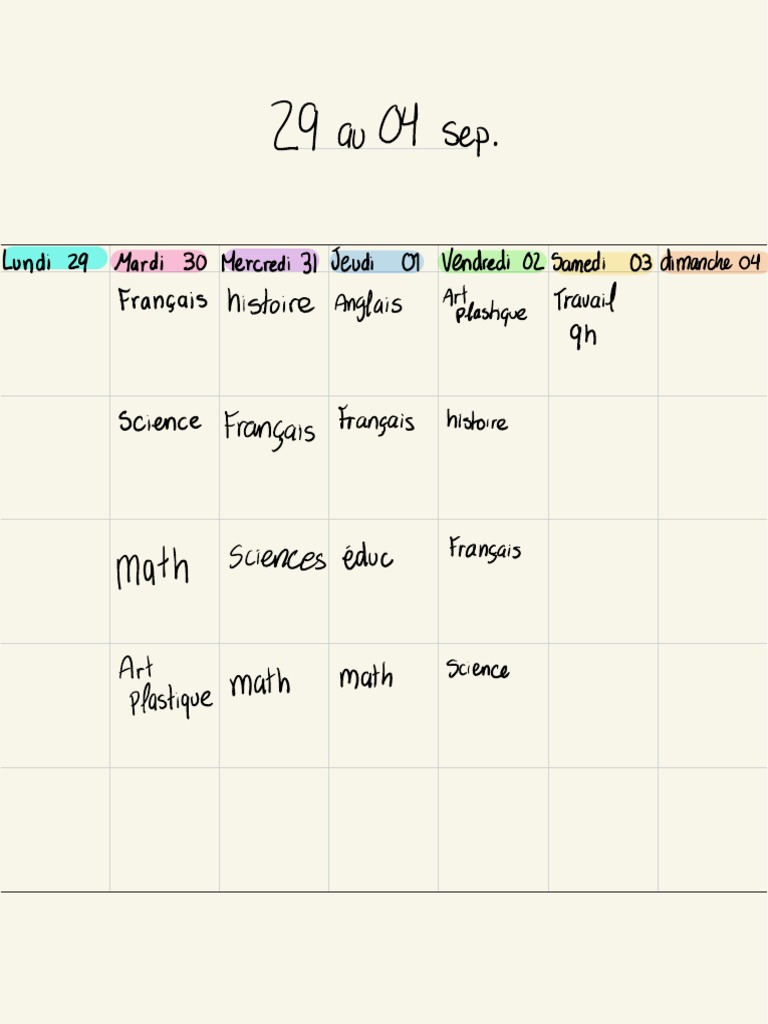 29 au 04 sep.
Lundi 29 Mardi 30 Mercredi 31 Jeudi 01 Vendredi 02 Samedi 03 dimanche 04
Français histoire Anglais Art plastique Travail 9h
Science Français Français histoire
math Sciences éduc Français
Art plastique math math Science